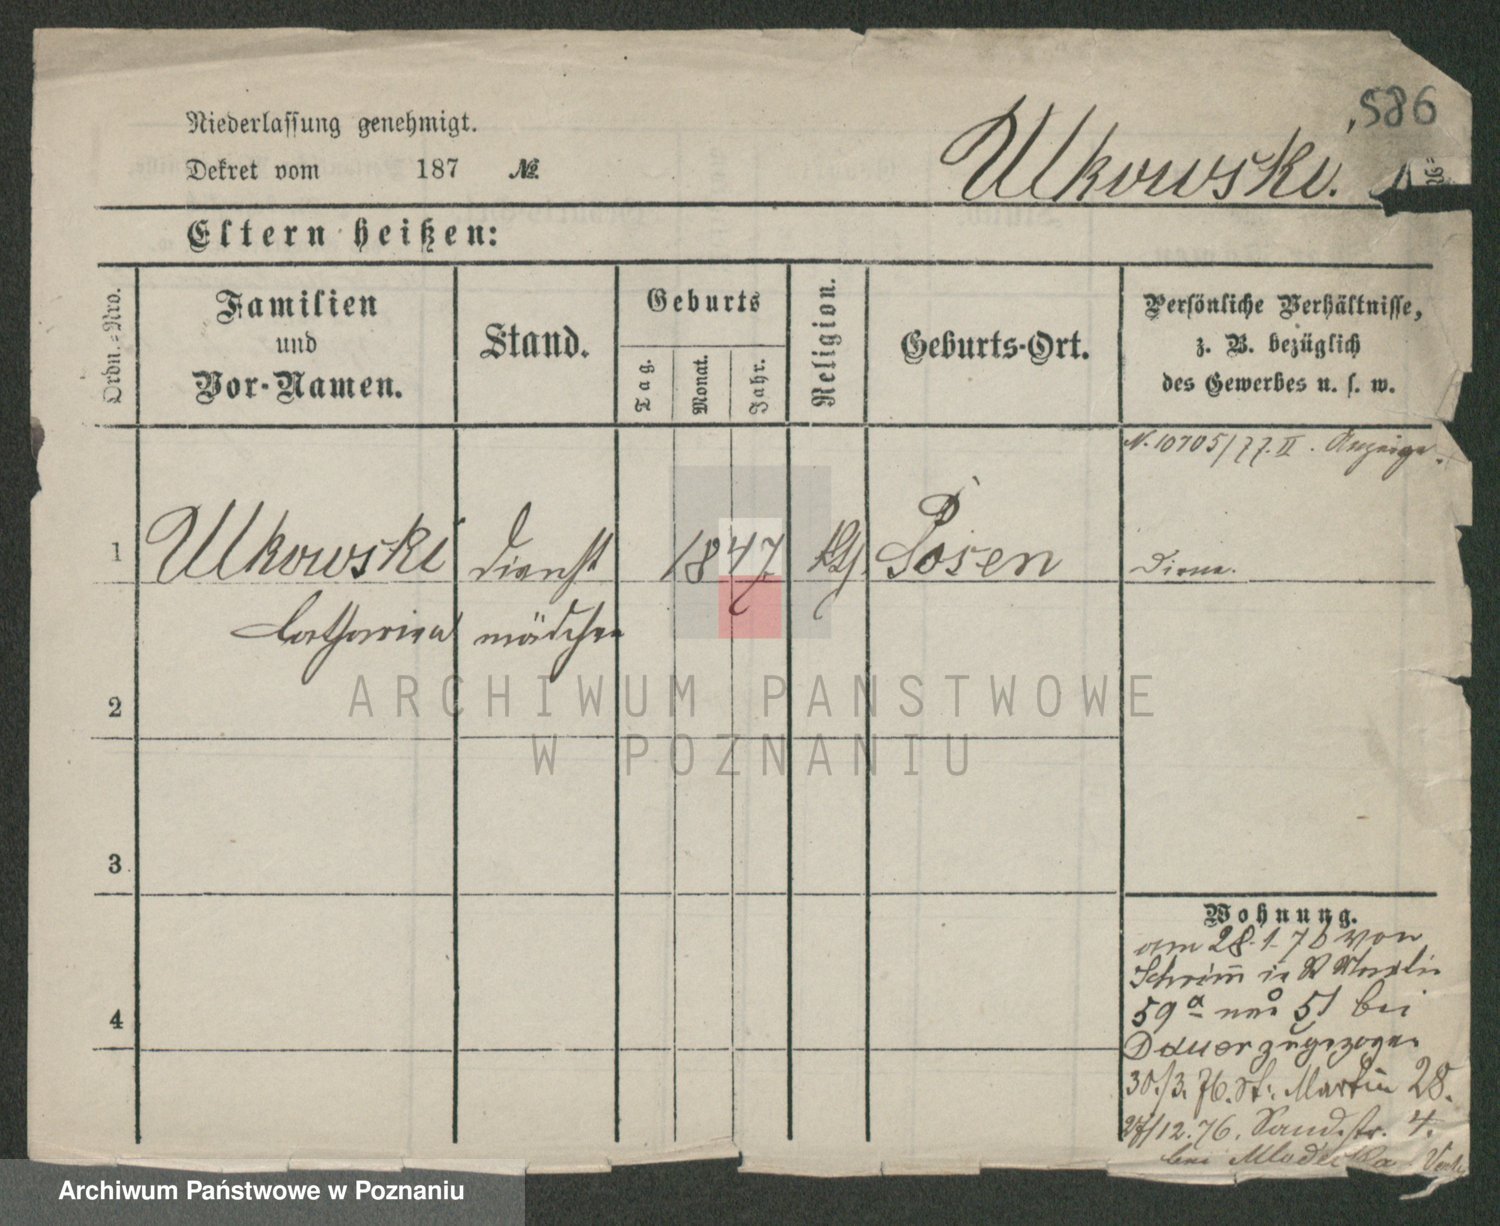 586
Niederlassung genehmigt.
Dekret vom 187 №
Ulkowski.
Eltern heißen:
Ordn.-Nro.
Familien
und
Vor-Namen.
Stand.
Geburts
Tag.
Monat.
Jahr.
Religion.
Geburts-Ort.
Persönliche Verhältnisse,
z. B. bezüglich
des Gewerbes u. s. w.
N. 10705/77. II. Anzeige.
1 Ulkowski Dienst 1847 Posen Dirne.
Catharina mädchen
2
3
4
Wohnung.
am 28.1.76 von
Schrimm in
59a und 51 bei
Dauer zugezogen
30./3.76. St. Martin 28.
27/12.76. Sandstr. 4.
bei
ARCHIWUM PAŃSTWOWE
W POZNANIU
Archiwum Państwowe w Poznaniu